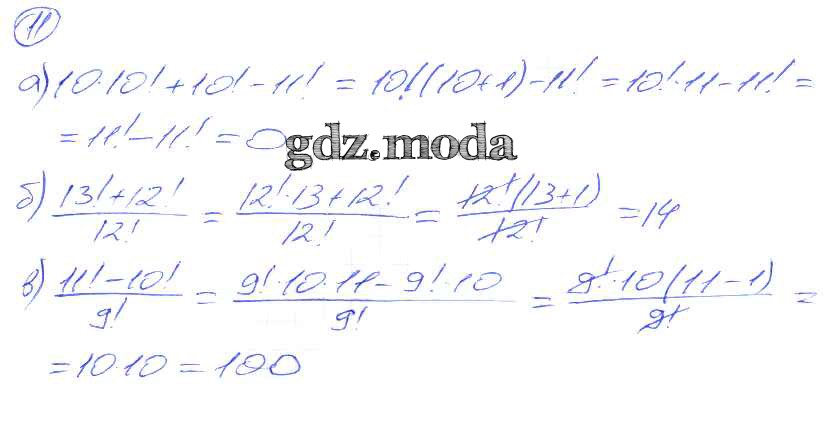 11
а) 10·10! + 10! - 11! = 10!(10+1) - 11! = 10!·11 - 11! =
= 11! - 11! = 0
gdz.moda
б) (13! + 12!)/12! = (12!·13 + 12!)/12! = 12!(13+1)/12! = 14
в) (11! - 10!)/9! = (9!·10·11 - 9!·10)/9! = 9!·10(11-1)/9! =
= 10·10 = 100